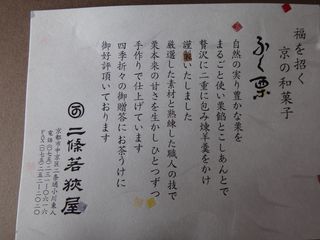 福を招く
京の和菓子
ふく栗
自然の実り豊かな栗を
まるごと使い栗餡とこしあんとで
贅沢に二重に包み煉羊羹をかけ
謹製いたしました
厳選した素材と熟練した職人の技で
栗本来の甘さを生かしひとつずつ
手作りで仕上げています
四季折々の御贈答にお茶うけに
御好評頂いております
二條若狭屋
京都市中京区二条通小川東入
電話(〇七五)二三一-〇六一六
FAX(〇七五)二五二-二〇二〇